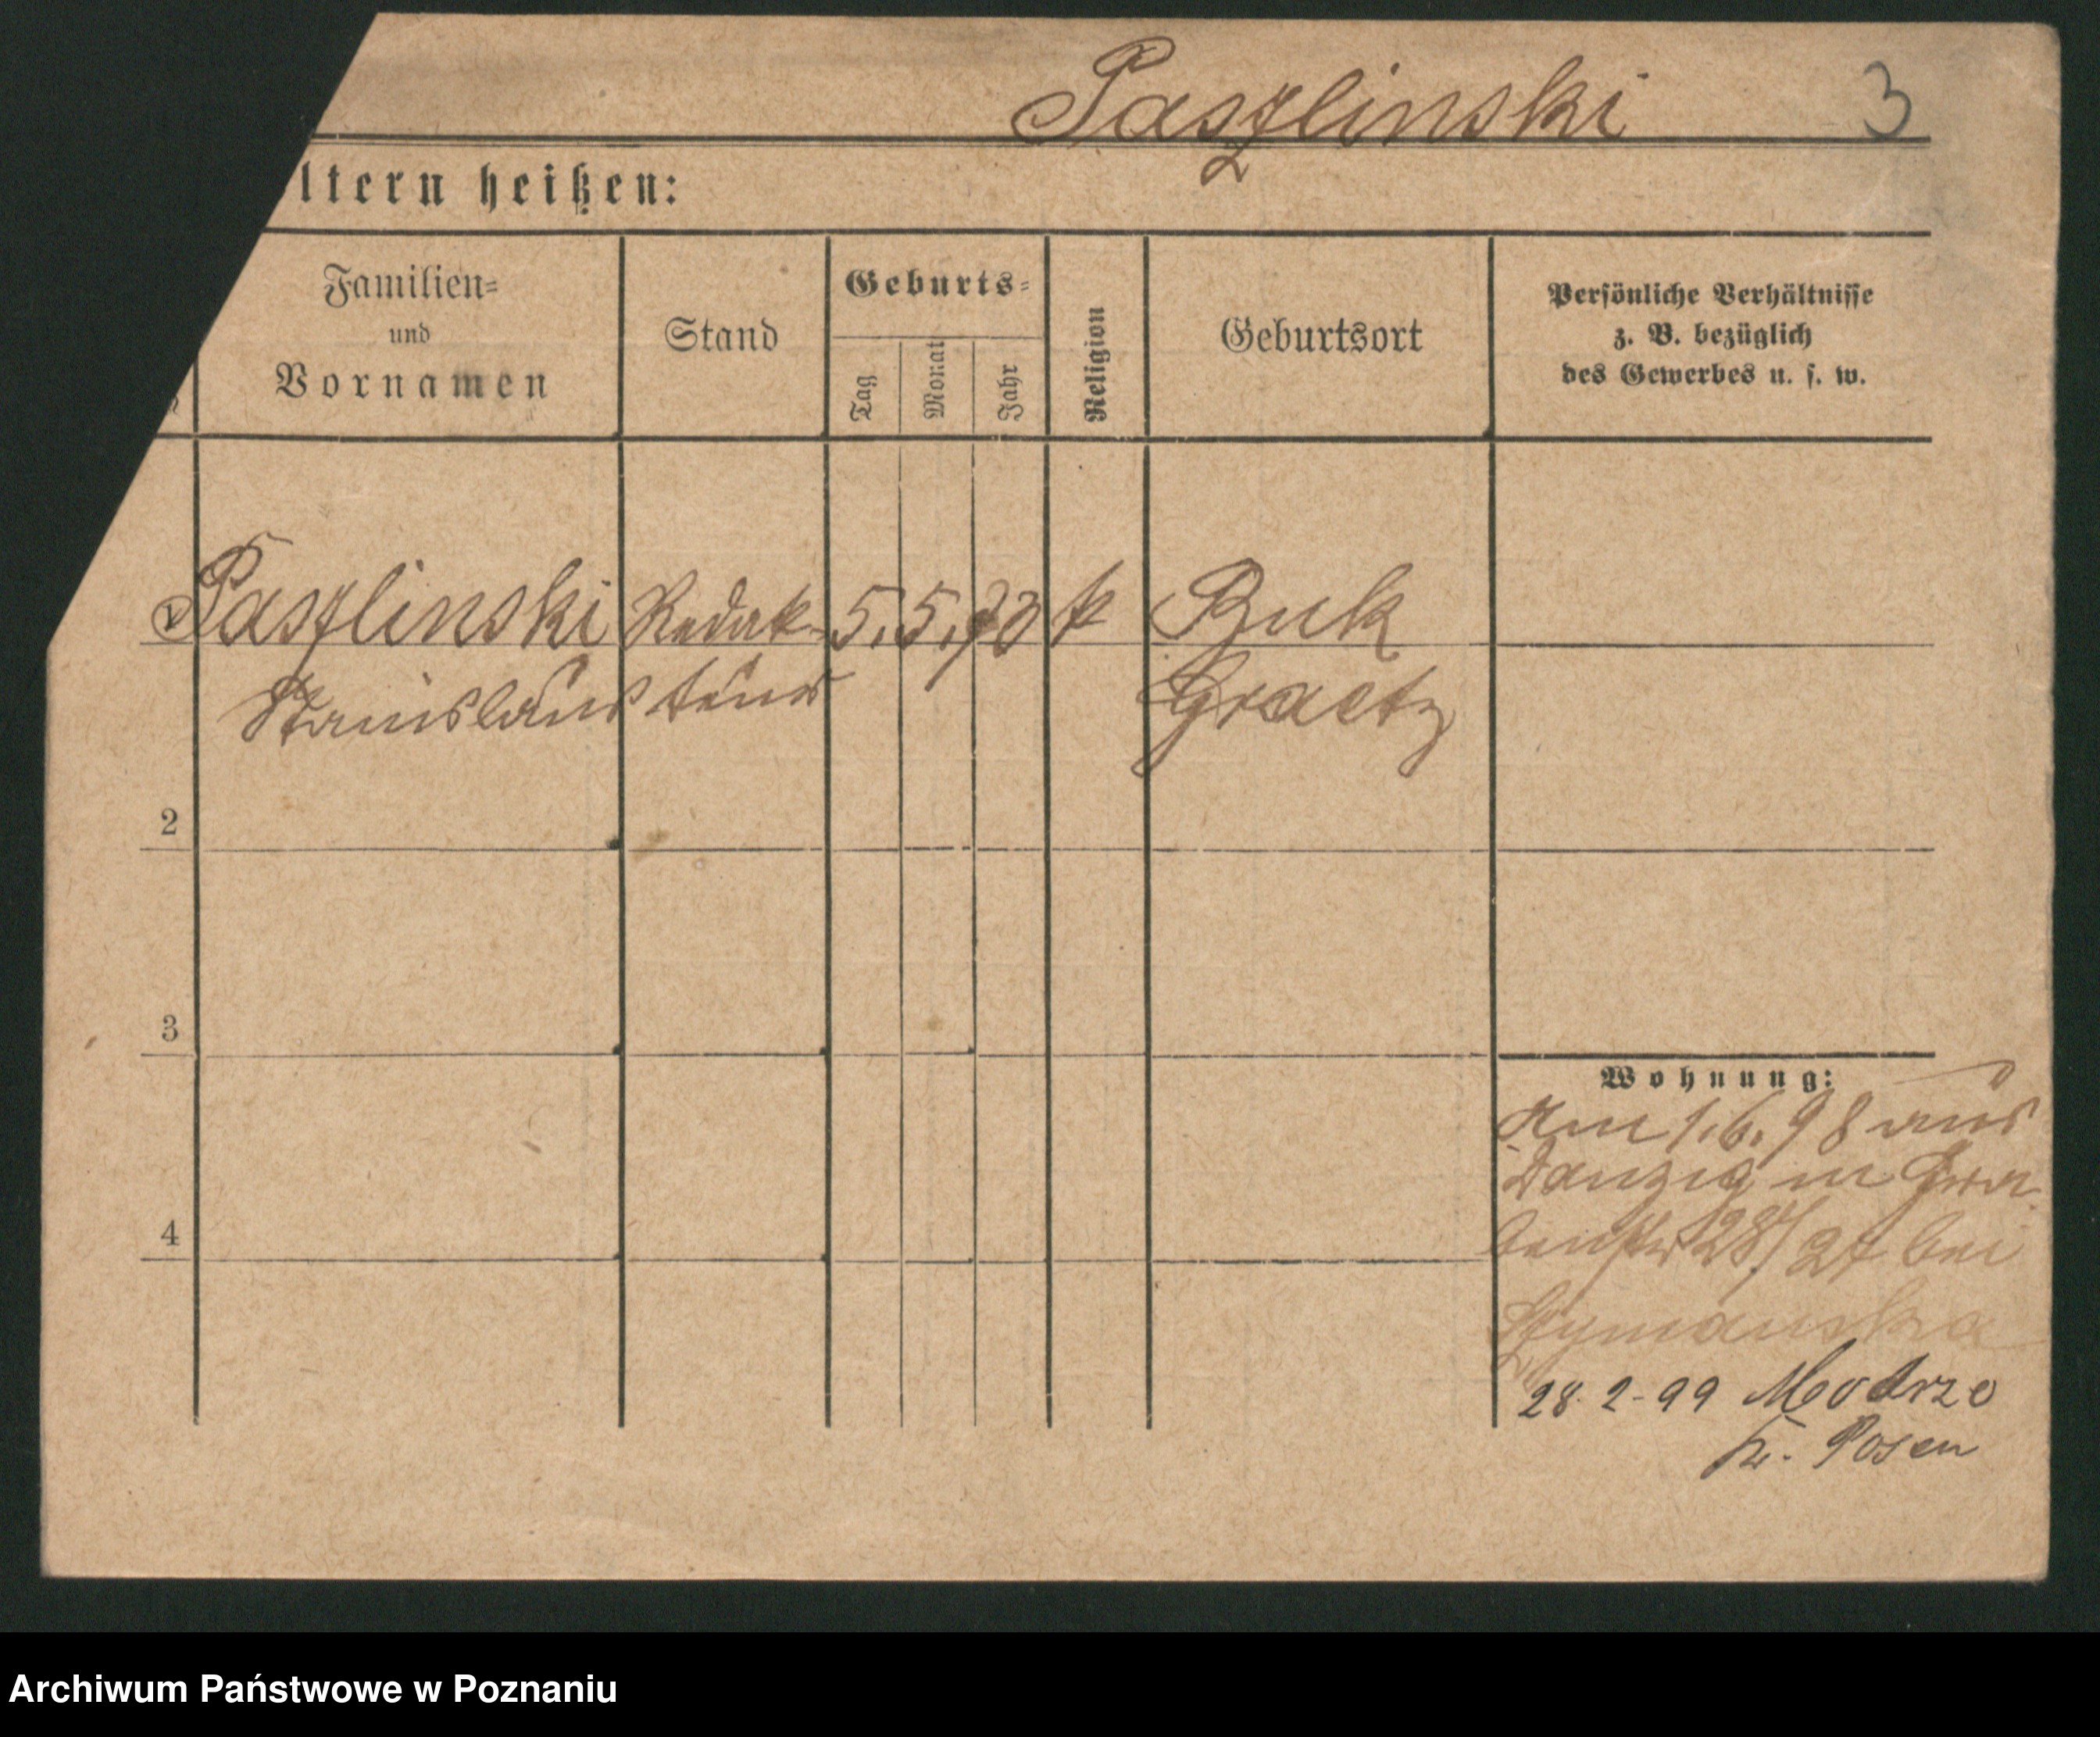 Paszlinski 3
ltern heißen:
Familien=
und
Vornamen
Stand
Geburts=
Tag
Monat
Jahr
Religion
Geburtsort
Persönliche Verhältnisse
z. B. bezüglich
des Gewerbes u. s. w.
1 Paszlinski Redak- 5. 5. 70 k Buk
Stanislaus teur Graetz
2
3
4
Wohnung:
Am 1.6.98 aus
Danzig in Gra-
benstr 28/27 bei
Szymanska
28.2-99 Modrze
Kr. Posen
Archiwum Państwowe w Poznaniu